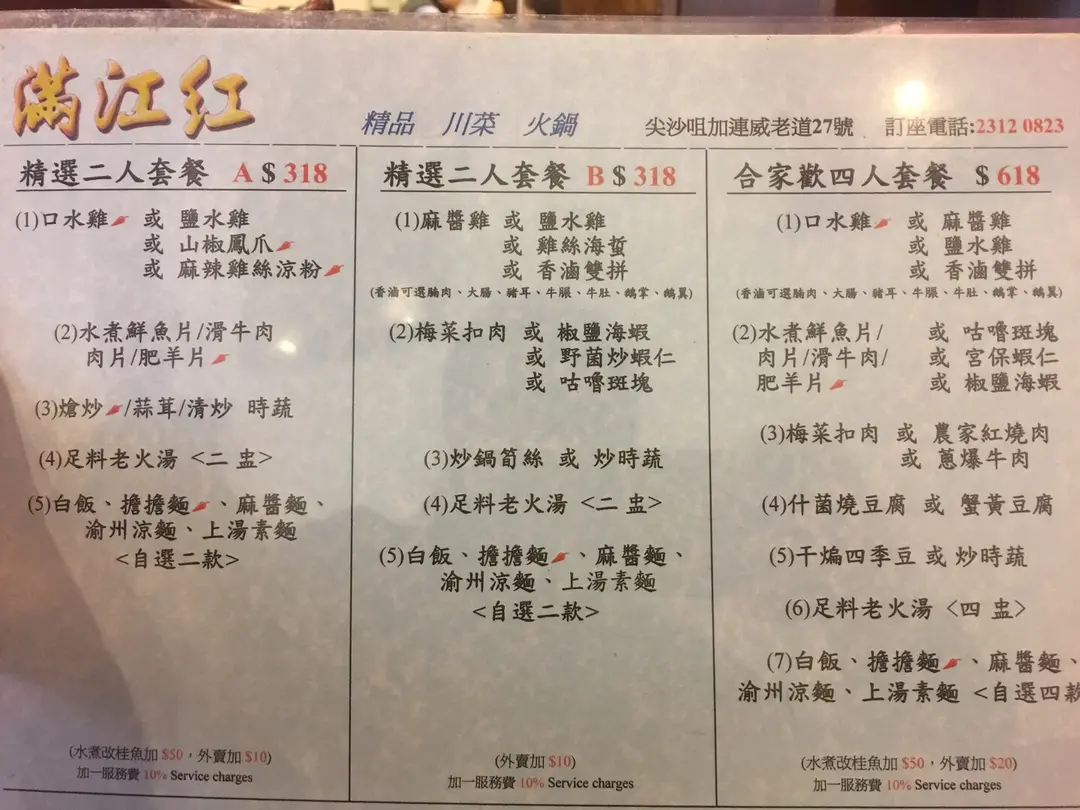 滿江紅
精品 川菜 火鍋
尖沙咀加連威老道27號 訂座電話:2312 0823
精選二人套餐 A $ 318
(1)口水雞 或 鹽水雞
或 山椒鳳爪
或 麻辣雞絲涼粉
(2)水煮鮮魚片/滑牛肉
肉片/肥羊片
(3)熗炒/蒜茸/清炒 時蔬
(4)足料老火湯 <二 盅>
(5)白飯、擔擔麵、麻醬麵、
渝州涼麵、上湯素麵
<自選二款>
(水煮改桂魚加 $50，外賣加 $10)
加一服務費 10% Service charges
精選二人套餐 B $ 318
(1)麻醬雞 或 鹽水雞
或 雞絲海蜇
或 香滷雙拼
(香滷可選腩肉、大腸、豬耳、牛腸、牛肚、鵝掌、鵝翼)
(2)梅菜扣肉 或 椒鹽海蝦
或 野菌炒蝦仁
或 咕嚕斑塊
(3)炒鍋筍絲 或 炒時蔬
(4)足料老火湯 <二 盅>
(5)白飯、擔擔麵、麻醬麵、
渝州涼麵、上湯素麵
<自選二款>
(外賣加 $10)
加一服務費 10% Service charges
合家歡四人套餐 $ 618
(1)口水雞 或 麻醬雞
或 鹽水雞
或 香滷雙拼
(香滷可選腩肉、大腸、豬耳、牛腸、牛肚、鵝掌、鵝翼)
(2)水煮鮮魚片/ 或 咕嚕斑塊
肉片/滑牛肉/ 或 宮保蝦仁
肥羊片 或 椒鹽海蝦
(3)梅菜扣肉 或 農家紅燒肉
或 蔥爆牛肉
(4)什菌燒豆腐 或 蟹黃豆腐
(5)干煸四季豆 或 炒時蔬
(6)足料老火湯 <四 盅>
(7)白飯、擔擔麵、麻醬麵、
渝州涼麵、上湯素麵 <自選四款
(水煮改桂魚加 $50，外賣加 $20)
加一服務費 10% Service charges